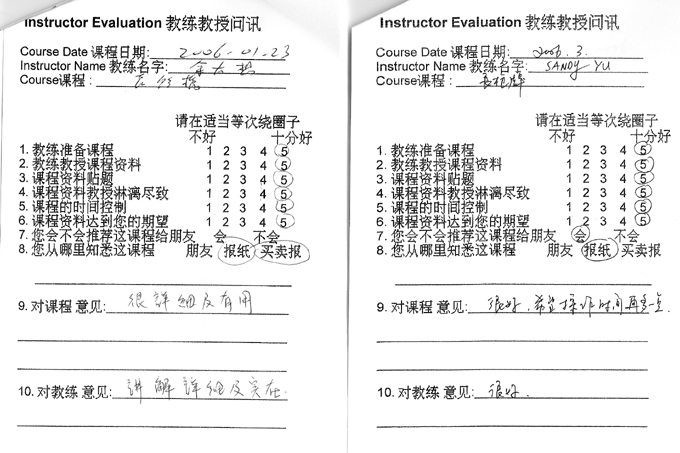 Instructor Evaluation 教练教授问讯
Course Date 课程日期: 2006-01-23
Instructor Name 教练名字:
Course课程:
请在适当等次绕圈子
不好 十分好
1. 教练准备课程 1 2 3 4 5
2. 教练教授课程资料 1 2 3 4 5
3. 课程资料贴题 1 2 3 4 5
4. 课程资料教授淋漓尽致 1 2 3 4 5
5. 课程的时间控制 1 2 3 4 5
6. 课程资料达到您的期望 1 2 3 4 5
7. 您会不会推荐这课程给朋友 会 不会
8. 您从哪里知悉这课程 朋友 报纸 买卖报
9. 对课程 意见: 很詳細及有用
10. 对教练 意见: 讲解詳細及实在.
Instructor Evaluation 教练教授问讯
Course Date 课程日期: 2006.3.
Instructor Name 教练名字: SANDY YU
Course课程:
请在适当等次绕圈子
不好 十分好
1. 教练准备课程 1 2 3 4 5
2. 教练教授课程资料 1 2 3 4 5
3. 课程资料贴题 1 2 3 4 5
4. 课程资料教授淋漓尽致 1 2 3 4 5
5. 课程的时间控制 1 2 3 4 5
6. 课程资料达到您的期望 1 2 3 4 5
7. 您会不会推荐这课程给朋友 会 不会
8. 您从哪里知悉这课程 朋友 报纸 买卖报
9. 对课程 意见: 很好,希望操作时间再多一点.
10. 对教练 意见: 很好.